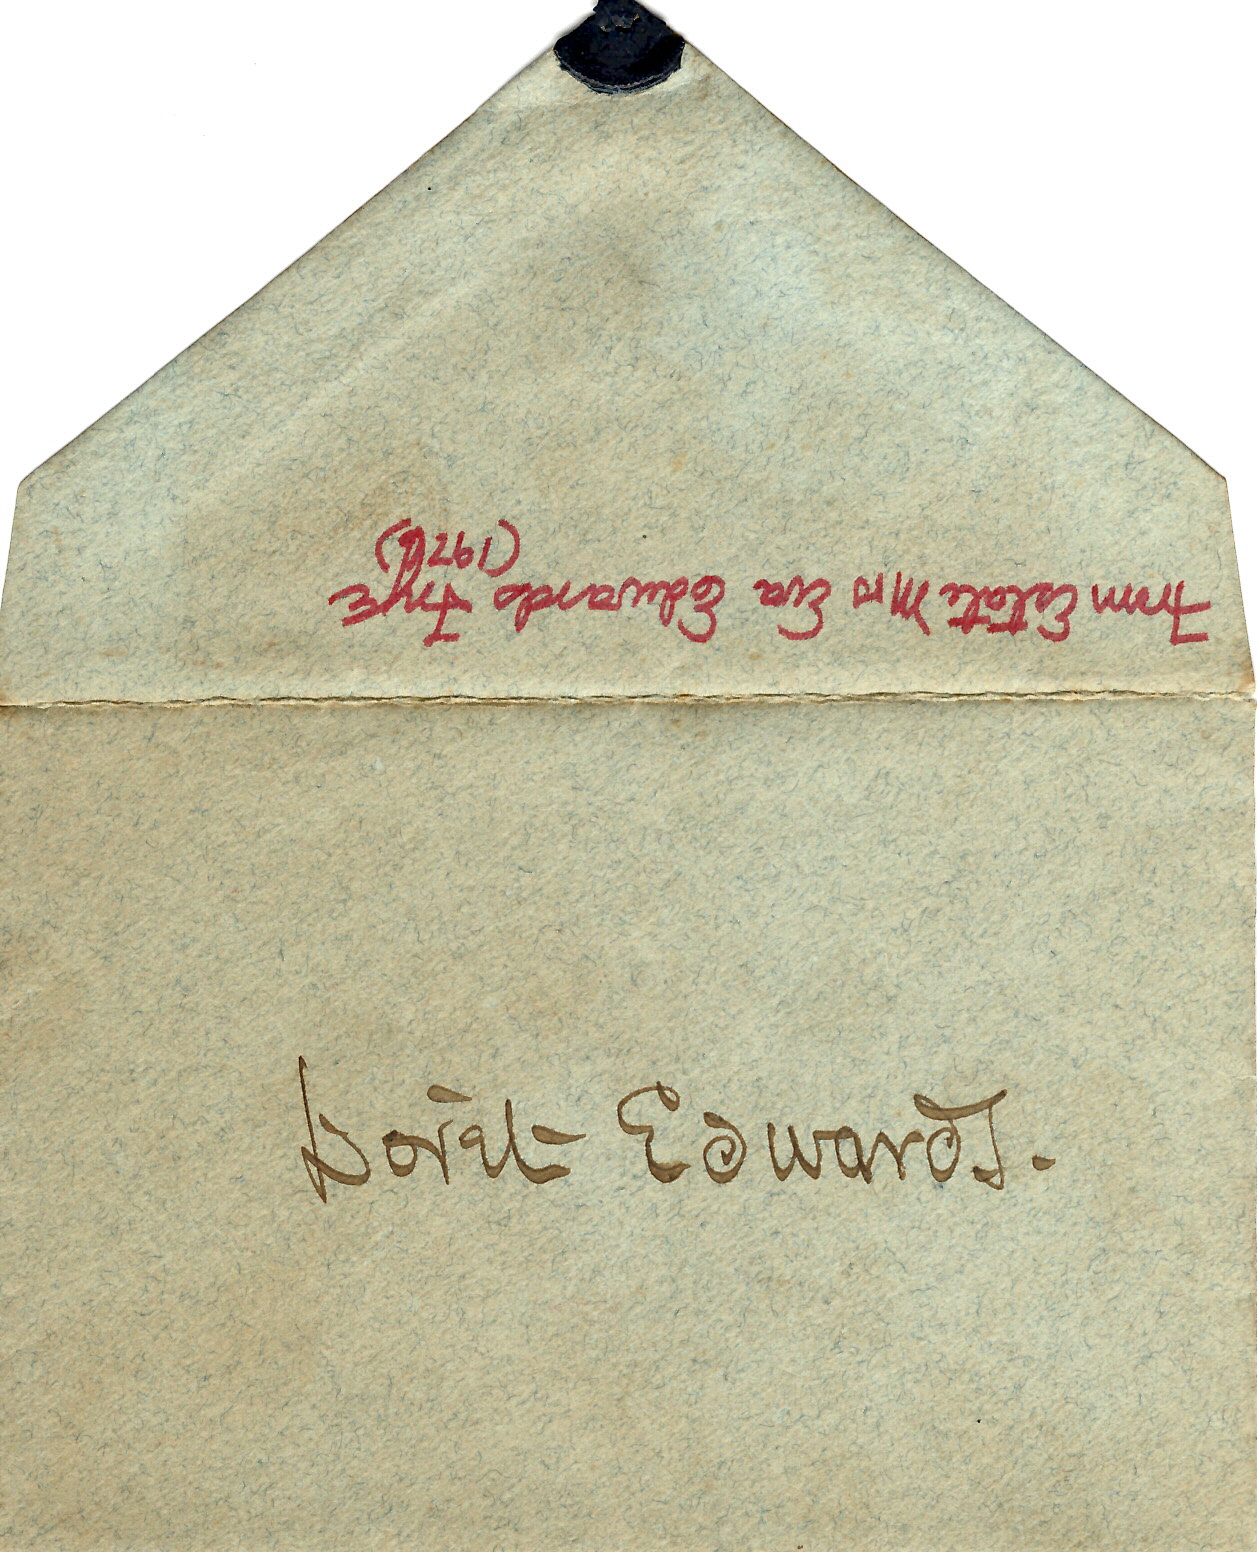 From Estate Mrs Eva Edwards Frye
(1976)
Edwards.